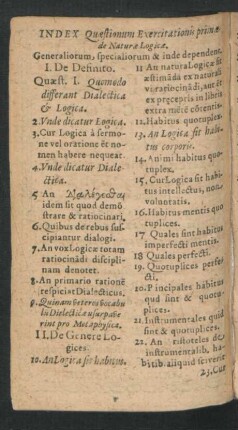 INDEX Quæstionum Exercitationis primæ
de Natura Logicæ.
Generaliorum, specialiorum & inde dependent.
I. De Definito.
Quæst. I. Quomodo
differant Dialectica
& Logica.
2. Vnde dicatur Logica.
3. Cur Logica à sermo-
ne vel oratione et no-
men habere nequeat.
4. Vnde dicatur Diale-
ctica.
5 An Διαλέγεσθαι
idem sit quod demõ
strare & ratiocinari.
6. Quibus de rebus su-
scipiantur dialogi.
7. An vox Logicæ totam
ratiocinãdi discipli-
nam denotet.
8. An primario rationē
respiciat Dialecticus.
9. Quinam veteres vocabu
lũ Dialecticæ usurpave
rint pro Metaphysica.
II. De Genere Lo-
gices
10. An Logica sit habitus.
11 An natura Logicæ sit
æstimãda ex naturali
vi ratiocinãdi, aut ēt
ex præceptis in libris
extra mētē cõtentis.
12. Habitus quotuplex.
13. An Logica sit habi-
tus corporis.
14. Animi habitus quo-
tuplex.
15. Cur Logica sit habi-
tus intellectus, non
voluntatis.
16. Habitus mentis quo
tuplices.
17 Quales sint habitus
imperfecti mentis.
18 Quales perfecti.
19. Quotuplices perfe-
cti.
20. Principales habitus
qui sint & quotu-
plices.
21. Instrumentales quid
sint & quotuplices.
22. An Aristoteles de
instrumentalib. ha-
bitib. aliquid sciverit
23. Cur